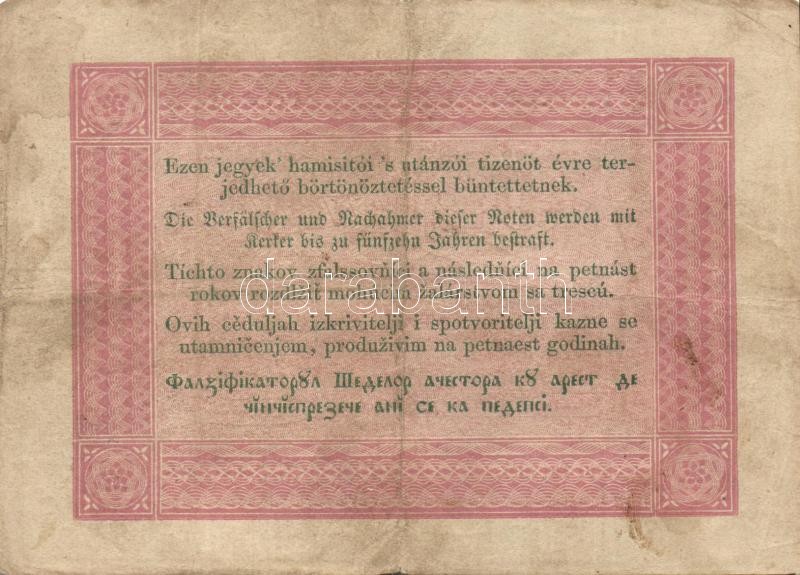 Ezen jegyek' hamisitói 's utánzói tizenöt évre ter-
jedhető börtönöztetéssel büntettetnek.
Die Verfälscher und Nachahmer dieser Noten werden mit
Kerker bis zu fünfzehn Jahren bestraft.
Tíchto znakov zfalssovňíci a následňíci na petnást
rokov rozdlžiť mohúcim žalárstvom sa trescú.
darabanth
Ovih cěduljah izkrivitelji i spotvoritelji kazne se
utamničenjem, produživim na petnaest godinah.
Фалꙁіфікаторꙋл Шеделор ачестора кꙋ арест де
чінчіспреꙁече ані се ка педепсі.